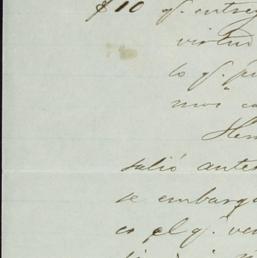 $10 q. entreg
virtud
lo q. p
mos ca
Hem
salió ante
se embarq
es el q. ve